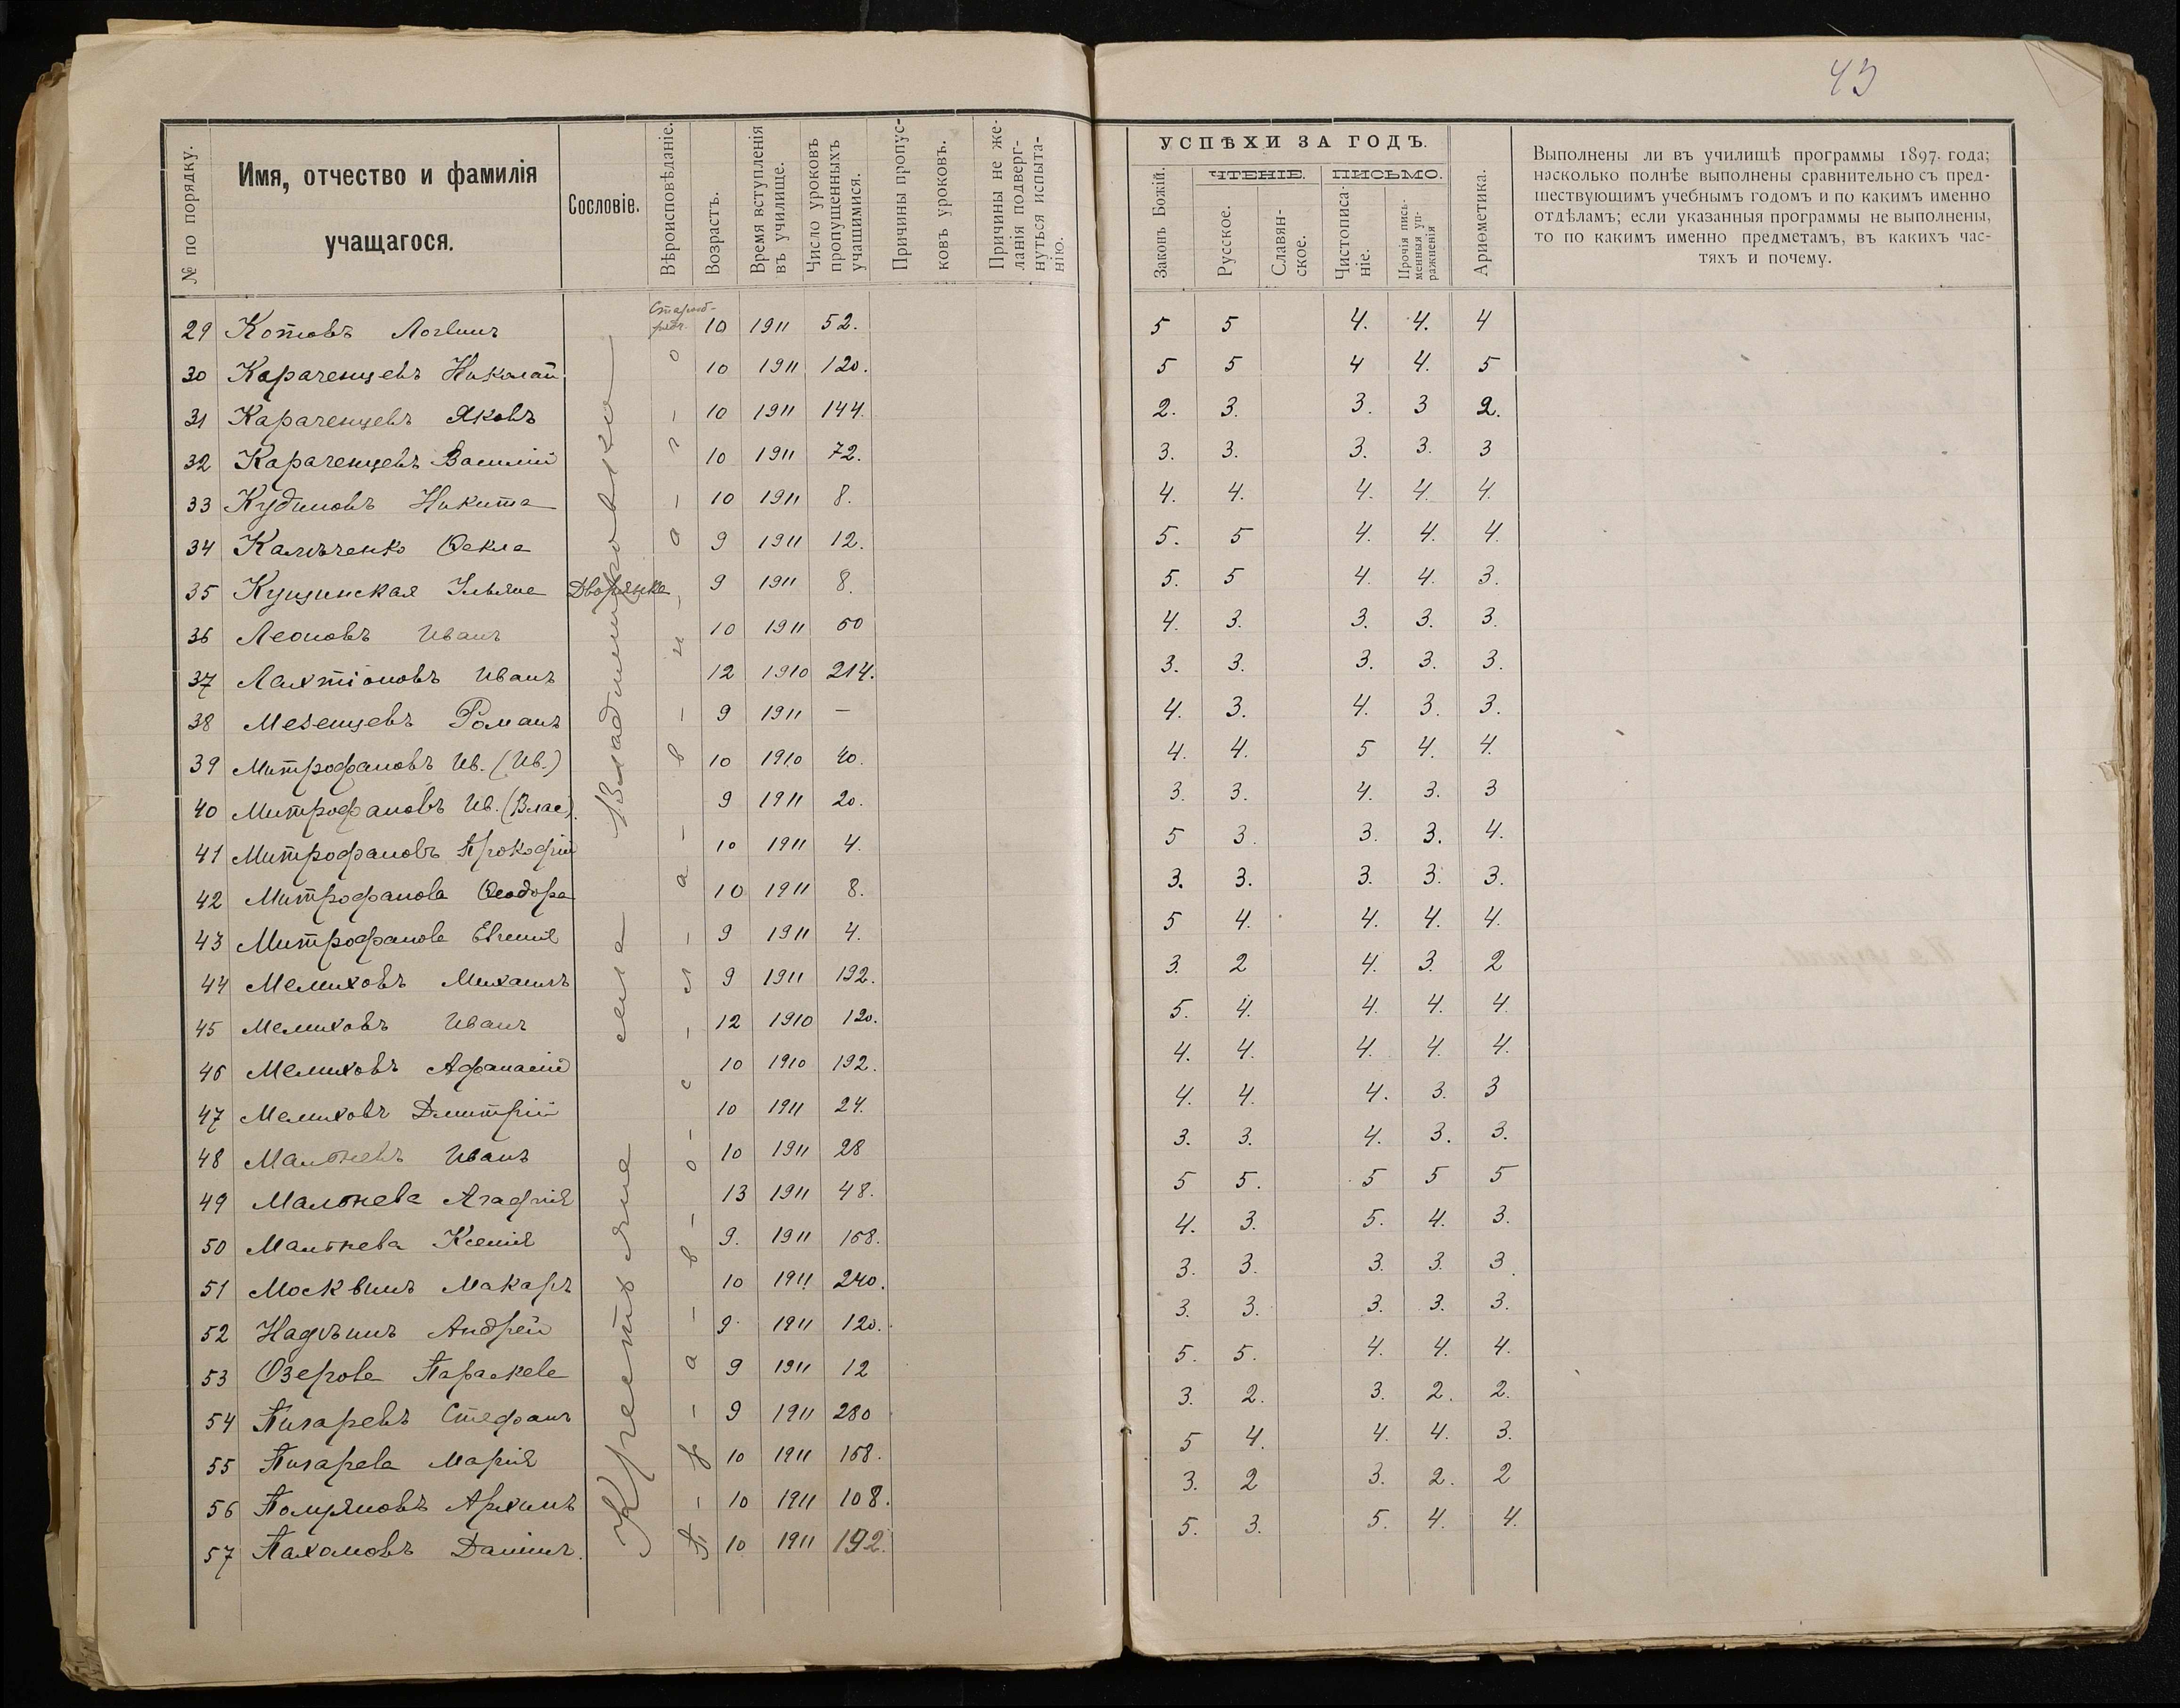 43
№ по порядку.
Имя, отчество и фамилія
учащагося.
Сословіе.
Вѣроисповѣданіе.
Возрастъ.
Время вступленія
въ училище.
Число уроковъ
пропущенныхъ
учащимися.
Причины пропус-
ковъ уроковъ.
Причины не же-
ланія подверг-
нуться испыта-
нію.
УСПѢХИ ЗА ГОДЪ.
Законъ Божій.
ЧТЕНІЕ.
Русское.
Славян-
ское.
ПИСЬМО.
Чистописа-
ніе.
Прочія пись-
менныя уп-
ражненія
Ариѳметика.
Выполнены ли въ училищѣ программы 1897 года;
насколько полнѣе выполнены сравнительно съ пред-
шествующимъ учебнымъ годомъ и по какимъ именно
отдѣламъ; если указанныя программы не выполнены,
то по какимъ именно предметамъ, въ какихъ час-
тяхъ и почему.
Крестьяне села Владимировки
П-р-а-в-о-с-л-а-в-н-а-г-о
29 Котовъ Логвинъ Старооб-рядч. 10 1911 52. 5 5 4. 4. 4
30 Караченцевъ Николай 10 1911 120. 5 5 4 4. 5
31 Караченцевъ Яковъ 10 1911 144. 2. 3. 3. 3 2.
32 Караченцевъ Василий 10 1911 72. 3. 3. 3. 3. 3
33 Кудиновъ Никита 10 1911 8. 4. 4. 4. 4. 4.
34 Каличенко Ѳекла 9 1911 12. 5. 5 4. 4. 4.
35 Кущинская Ульяна Дворянка 9 1911 8. 5. 5 4. 4. 3.
36 Леоновъ Иванъ 10 1911 60 4. 3. 3. 3. 3.
37 Лахтіоновъ Иванъ 12 1910 214. 3. 3. 3. 3. 3.
38 Мезенцевъ Романъ 9 1911 — 4. 3. 4. 3. 3.
39 Митрофановъ Ив. (Ив.) 10 1910 40. 4. 4. 5 4. 4.
40 Митрофановъ Ив. (Влас). 9 1911 20. 3. 3. 4. 3. 3
41 Митрофановъ Прокофій 10 1911 4. 5 3. 3. 3. 4.
42 Митрофанова Ѳеодора 10 1911 8. 3. 3. 3. 3. 3.
43 Митрофанова Евгенія 9 1911 4. 5 4. 4. 4. 4.
44 Мелиховъ Михаилъ 9 1911 192. 3. 2 4. 3. 2
45 Мелиховъ Иванъ 12 1910 120. 5. 4. 4. 4. 4.
46 Мелиховъ Афанасій 10 1910 192. 4. 4. 4. 4. 4.
47 Мелиховъ Дмитрій 10 1911 24. 4. 4. 4. 3. 3
48 Малѣневъ Иванъ 10 1911 28 3. 3. 4. 3. 3.
49 Малѣнева Агафія 13 1911 48. 5 5. 5 5 5
50 Малѣнева Ксенія 9. 1911 168. 4. 3. 5. 4. 3.
51 Москвинъ Макаръ 10 1911 240. 3. 3. 3. 3. 3.
52 Надѣинъ Андрей 9 1911 120. 3. 3. 3. 3. 3.
53 Озерова Параскева 9 1911 12 5. 5. 4. 4. 4.
54 Писаревъ Стефанъ 9 1911 280 3. 2. 3. 2. 2.
55 Писарева Марія 10 1911 168. 5 4. 4. 4. 3.
56 Полуяновъ Архипъ 10 1911 108. 3. 2 3. 2. 2
57 Пахомовъ Даниилъ. 10 1911 192. 5. 3. 5. 4. 4.